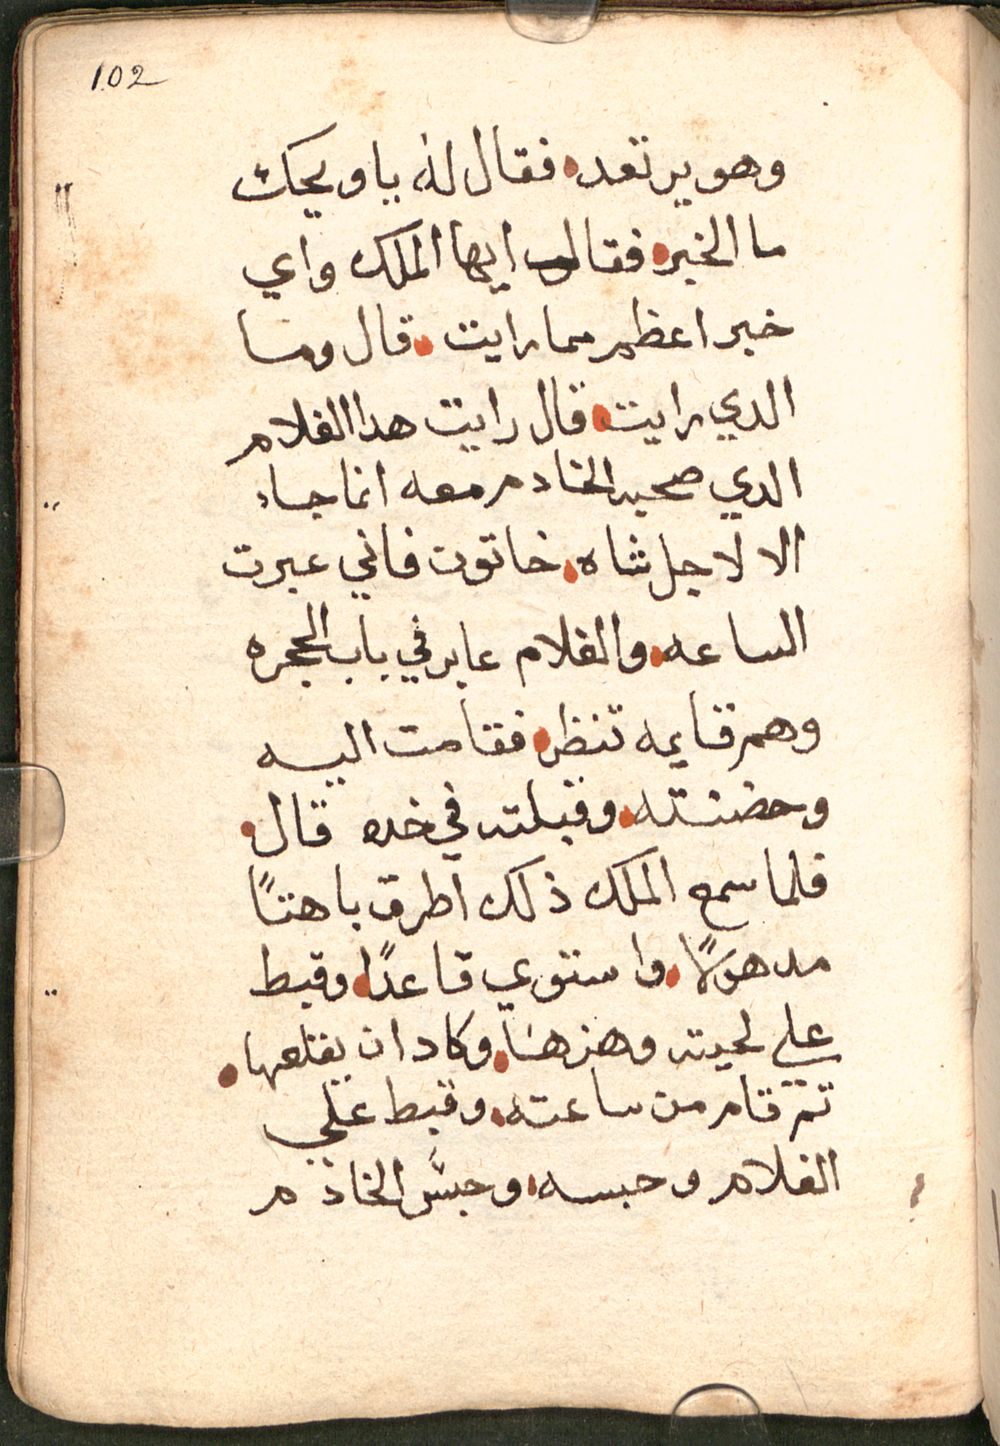 102
وهو يرتعد، فقال له يا ويحك
ما الخبر، فقال ايها الملك واي
خبر اعظم مما رايت، قال وما
الدي رايت، قال رايت هدا الغلام
الدي صحبه الخادم معه انما جاء
الا لاجل شاه، خاتون فاني عبرت
الساعه، والغلام عابر في باب الحجره
وهم قايمه تنظر، فقامت اليه
وحضنته، وقبلته في خده قال،
فلما سمع الملك ذلك اطرق باهتًا
مدهولًا، واستوي قاعدًا، وقبط
علي لحيته وهزها، وكاد ان يقلعها،
تم قام من ساعته، وقبط علي
الغلام وحبسه، وحبس الخادم